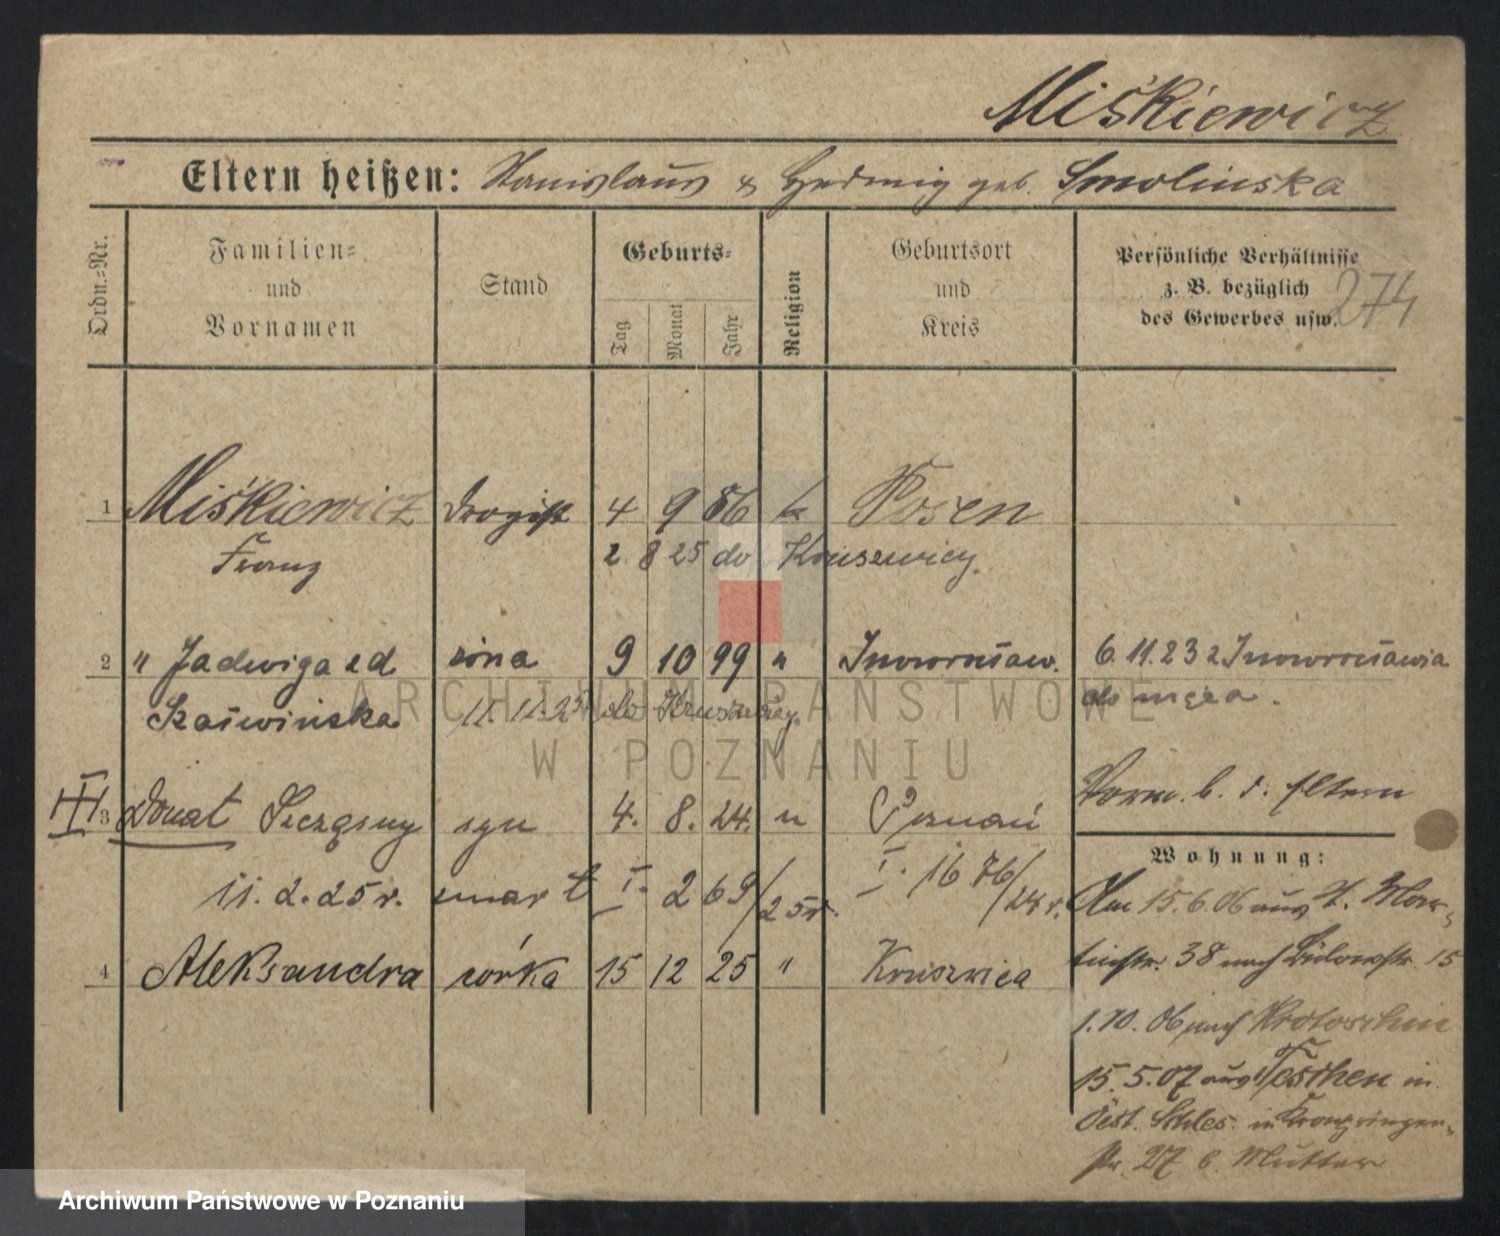 Miśkiewicz
Eltern heißen: Stanislaus & Hedwig geb. Smolinska
Ordn.=Nr.
Familien=
und
Vornamen
Stand
Geburts=
Tag
Monat
Jahr
Religion
Geburtsort
und
Kreis
Persönliche Verhältnisse
z. B. bezüglich
des Gewerbes usw.
274
1 Miśkiewicz Drogist 4 9 86 k Posen
Franz 2. 8 25 do Kruszwicy.
2 " Jadwiga z d żona 9 10 99 " Inowrocław. 6.11.23 z Inowrocławia
Szaświńska 11.11.25 do Kruszwicy. do męża.
III 3 Donat Szczęsny syn 4. 8. 24. " Poznań Vorm. b. d. Eltern
11.2.25 r. zmarł I. 269/25 r. I. 1676/24 r.
4 Aleksandra córka 15 12 25 " Kruszwica
Wohnung:
Am 15.6.06 aus St. Mar-
tinstr. 38 nach Bülowstr. 15
1.10.06 nach Krotoschin
15.5.07 aus Teschen in
Öest. Schles. in Kronprinzen-
str. 27 b. Mutter
ARCHIWUM PAŃSTWOWE
W POZNANIU
Archiwum Państwowe w Poznaniu